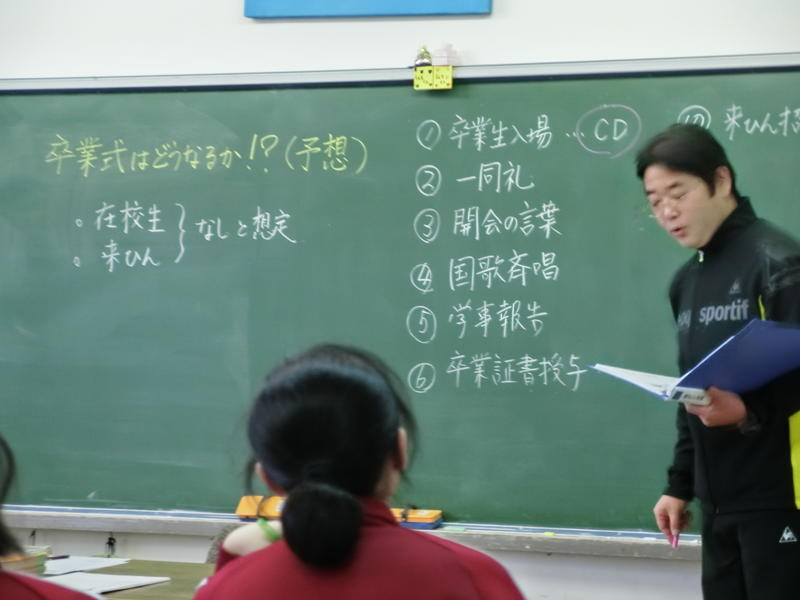 卒業式はどうなるか!?(予想)
。在校生
。来ひん
なしと想定
① 卒業生入場…CD
② 一同礼
③ 開会の言葉
④ 国歌斉唱
⑤ 学事報告
⑥ 卒業証書授与
来ひん
sportif